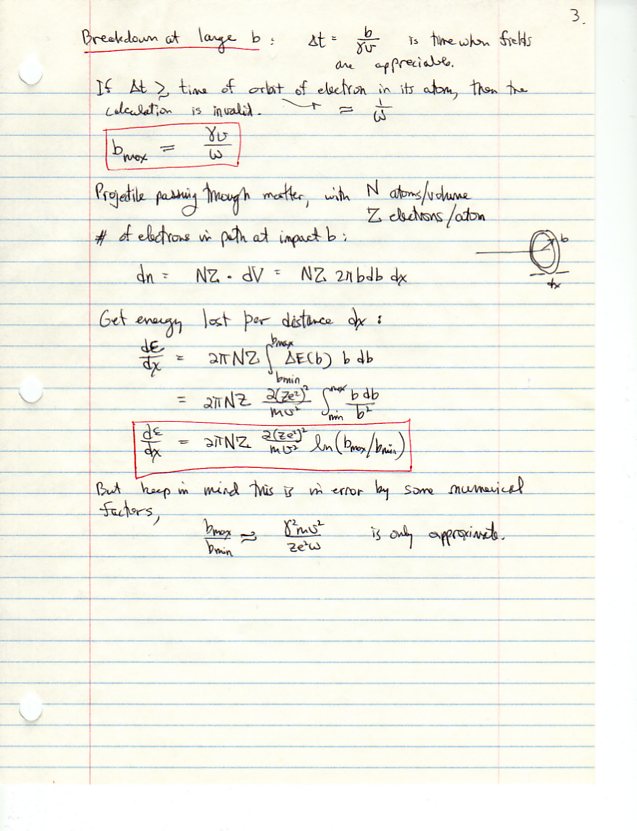 3.
Breakdown at large b : Δt = b/γv is time when fields
are appreciable.
If Δt ≳ time of orbit of electron in its atom, then the
calculation is invalid. ≈ 1/ω
b_max = γv/ω
Projectile passing through matter, with N atoms/volume
Z electrons/atom
# of electrons in path at impact b :
dn = NZ · dV = NZ 2πbdb dx
b
dx
Get energy lost per distance dx :
dE/dx = 2πNZ ∫_bmin^bmax ΔE(b) b db
= 2πNZ 2(ze²)²/mv² ∫_min^max b db/b²
dE/dx = 2πNZ 2(ze²)²/mv² ln(b_max/b_min)
But keep in mind this is in error by some numerical
factors,
b_max/b_min ≈ γ²mv³/ze²ω is only approximate.